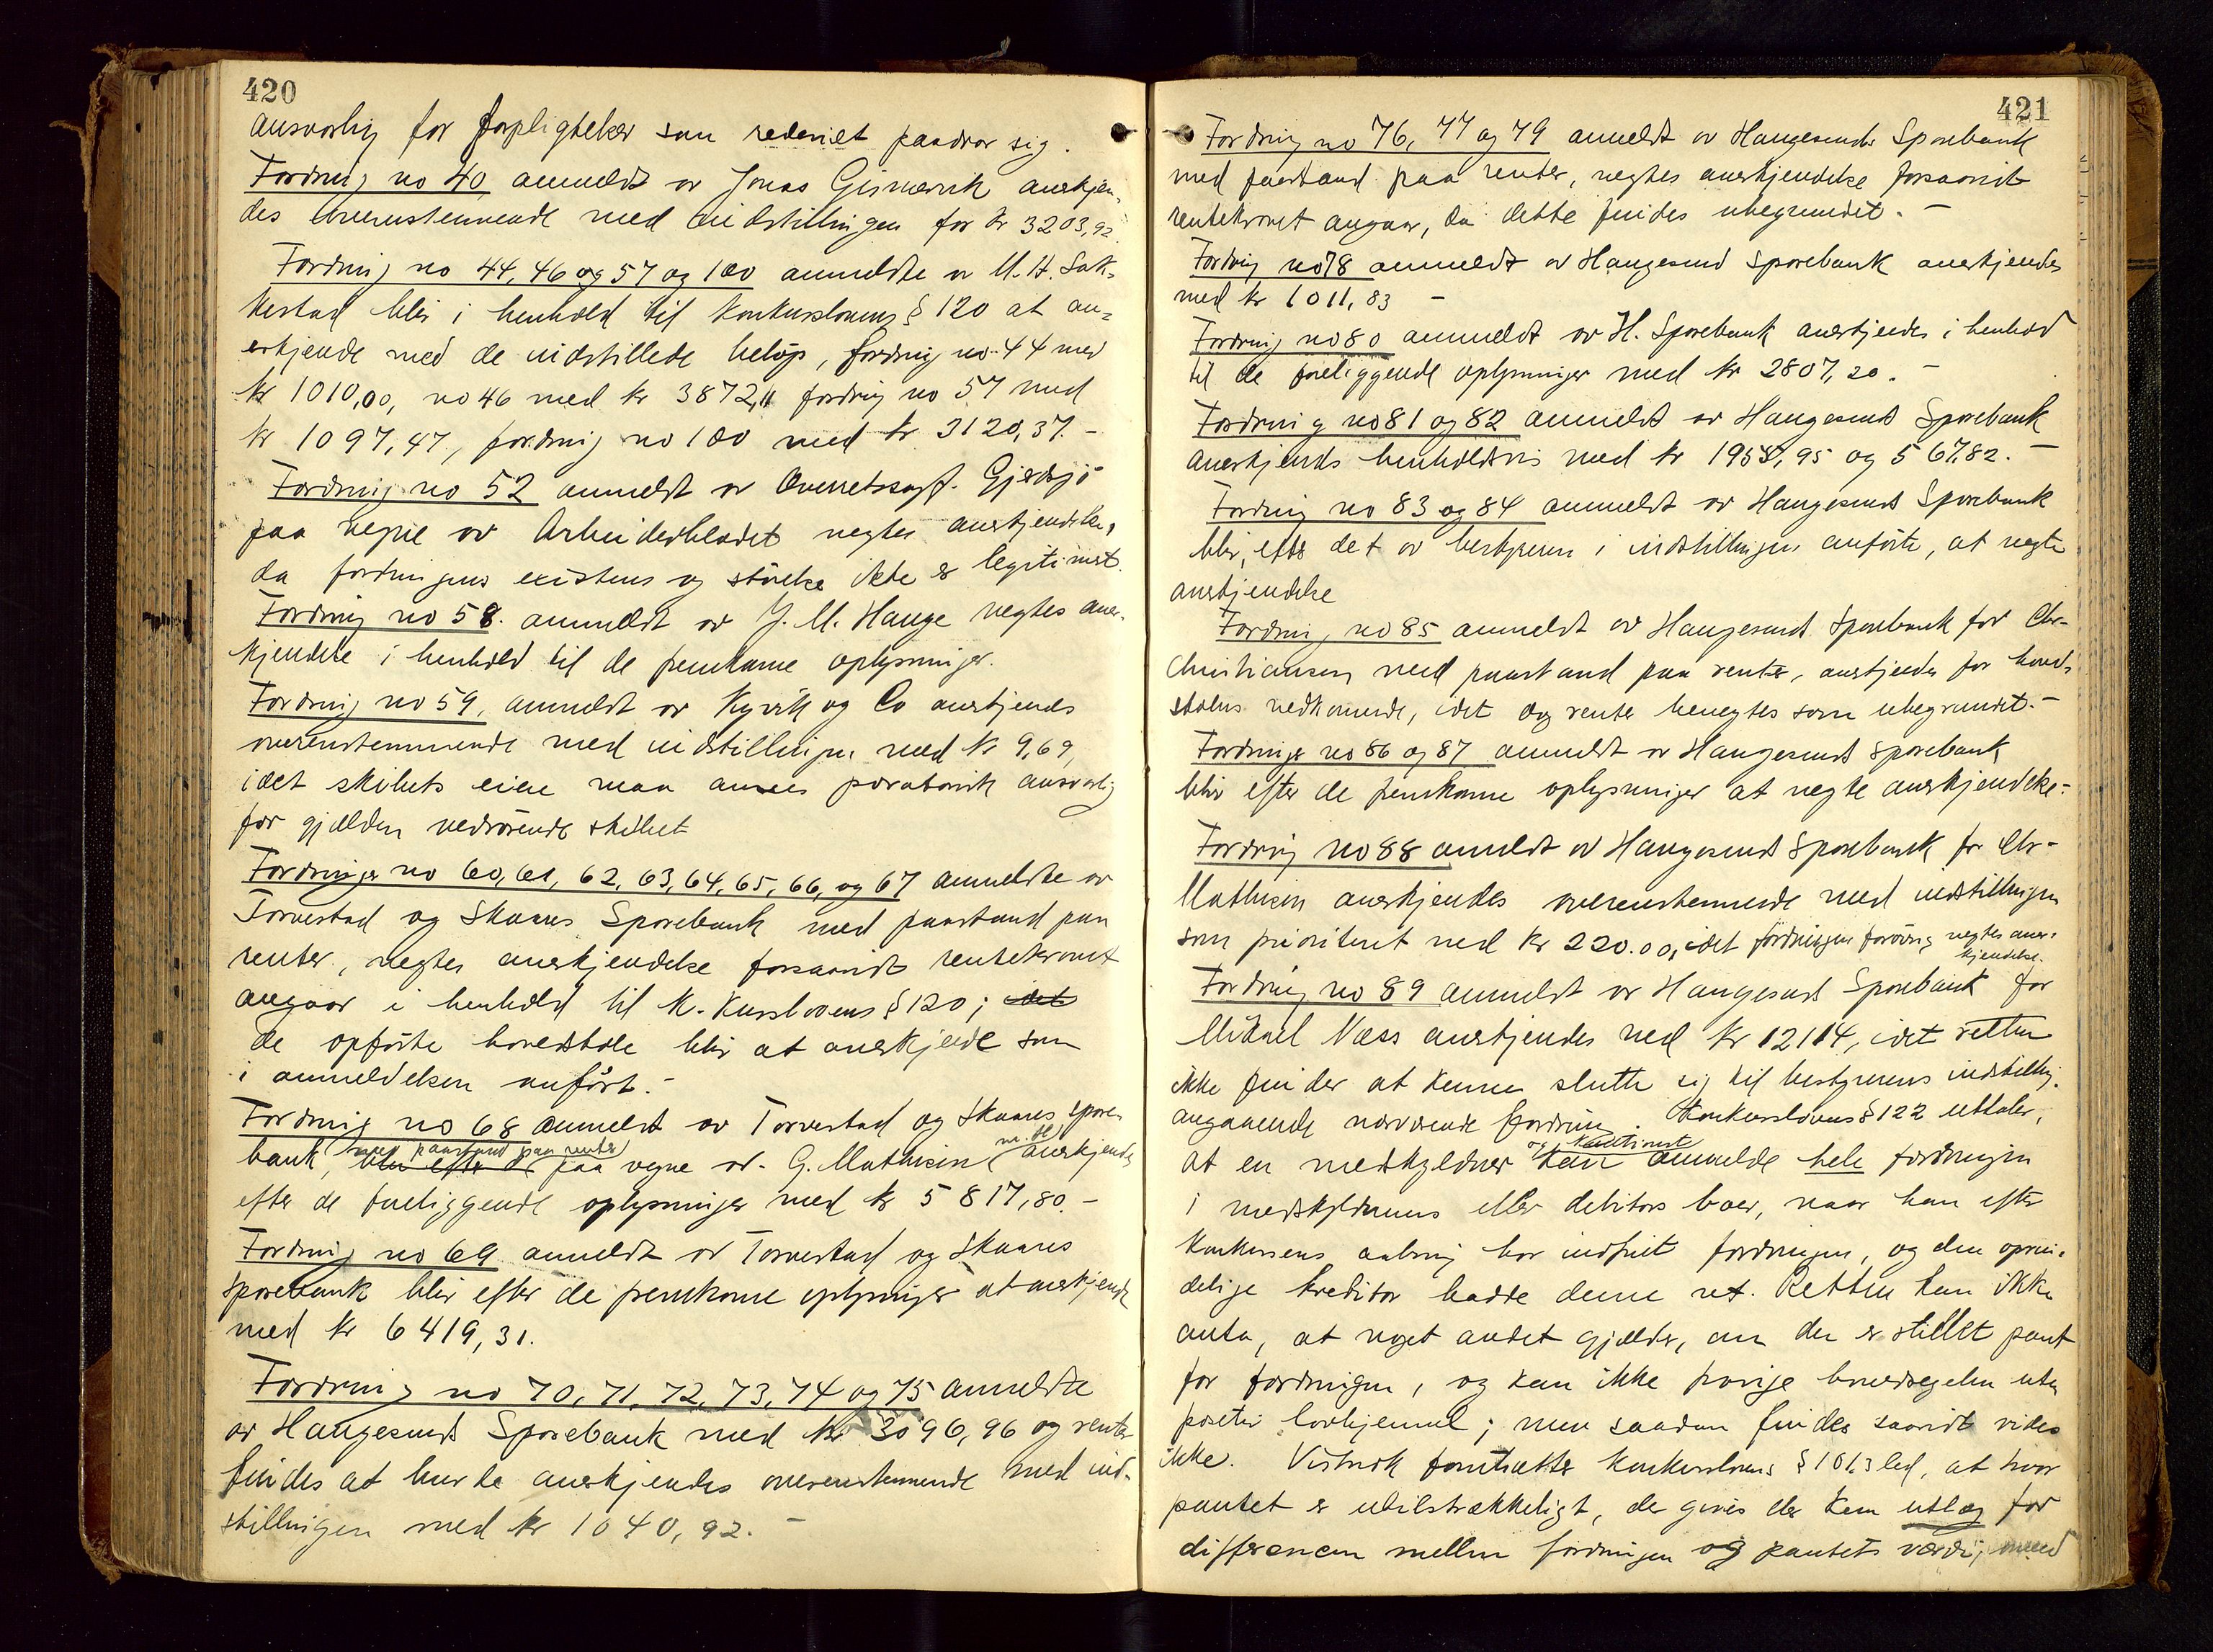 420
ansvarlig for forpligtelser som rederiet paadrar sig.
Fordring no 40 anmeldt av Jonas Gismervik anerkjen-
des overenstemmende med indstillingen for kr 3203,92.
Fordring no 44, 46 og 57 og 100 anmeldte av M. H. Sak-
kestad blir i henhold til Konkurslovens § 120 at an-
erkjende med de indstillede beløp, fordring no 44 med
kr 1010,00, no 46 med kr 3872,11 fordring no 57 med
kr 1097,47, fordring no 100 med kr 3120,37. -
Fordring no 52 anmeldt av Overretssagf. Gjerdsjø
paa vegne av Arbeiderbladet negtes anerkjendelse,
da fordringens existens og størelse ikke er legitimert.
Fordring no 58. anmeldt av J. M. Hauge negtes aner-
kjendelse i henhold til de fremkomne oplysninger.
Fordring no 59, anmeldt av Kyvik og Co anerkjendes
overenstemmende med indstillingen med kr 9,69,
idet skibets eiere maa ansees proratarisk ansvarlig
for gjælden vedrørende skibet
Fordringer no 60, 61, 62, 63, 64, 65, 66, og 67 anmeldte av
Torvestad og Skaares Sparebank med paastand paa
renter, negtes anerkjendelse forsaavidt rentekravet
angaar i henhold til K. Kurslovens § 120; idet
de opførte hovedstole blir at anerkjende som
i anmeldelsen anført. -
Fordring no 68 anmeldt av Torvestad og Skaares spare-
bank, med paastand paa renter blir efter de paa vegne av G. Mathisen anerkjendes
efter de foreliggende oplysninger med kr 5817,80. -
Fordring no 69 anmeldt av Torvestad og Skaares
sparebank blir efter de fremkomne oplysninger at anerkjende
med kr 6419,31.
Fordring no 70, 71, 72, 73, 74 og 75 anmeldte
av Haugesunds Sparebank med kr 3096,96 og renter
findes at burde anerkjendes overenstemmende med ind-
stillingen med kr 1040,92. -
421
Fordring no 76, 77 og 79 anmeldt av Haugesunds Sparebank
med paastand paa renter, negtes anerkjendelse forsaavidt
rentekravet angaar, da dette findes ubegrundet. -
Fordring no 78 anmeldt av Haugesund Sparebank anerkjendes
med kr 1011,83 -
Fordring no 80 anmeldt av H. Sparebank anerkjendes i henhold
til de foreliggende oplysninger med kr 2807,20. -
Fordring no 81 og 82 anmeldt av Haugesunds Sparebank
anerkjendes henholdsvis med kr 1958,95 og 567,82. -
Fordring no 83 og 84 anmeldt av Haugesunds Sparebank
blir, efter det av bestyreren i indstillingen anførte, at negte
anerkjendelse
Fordring no 85 anmeldt av Haugesunds Sparebank for Chr.
Christiansen med paastand paa renter, anerkjendes for hoved-
stolens vedkomende, idet og renter benegtes som ubegrundet. -
Fordringer no 86 og 87 anmeldt av Haugesunds sparebank
blir efter de fremkomne oplysninger at negte anerkjendelse. -
Fordring no 88 anmeldt av Haugesunds Sparebank for Chr.
Mathisen anerkjendes overenstemmende med indstillingen
som prioritert med kr 220.00, idet fordringen forøvrig negtes aner-
kjendelse.
Fordring no 89 anmeldt av Haugesund Sparebank for
Mikael Næss anerkjendes med kr 12114, idet retten
ikke finder at kunne slutte sig til bestyrerens indstilling
angaaende nærværende fordring. Konkurslovens § 122 uttaler,
at en medskyldner og kautionist kan anmelde hele fordringen
i medskyldnerens eller debitors boer, naar han efter
konkursens aabning har indfriet fordringen, og den oprin-
delige kreditor hadde denne ret. Retten kan ikke
anta, at noget andet gjælder, om der er stillet pant
for fordringen, og kan ikke fravige hovedregelen uten
positiv lovhjemmel; men saadan findes saavidt vides
ikke. Vistnok forutsætter konkurslovens § 101. 3 led, at hvor
pantet er utilstrækkeligt, der gives der kun utlæg for
differencen mellem fordringen og pantets værdi, med